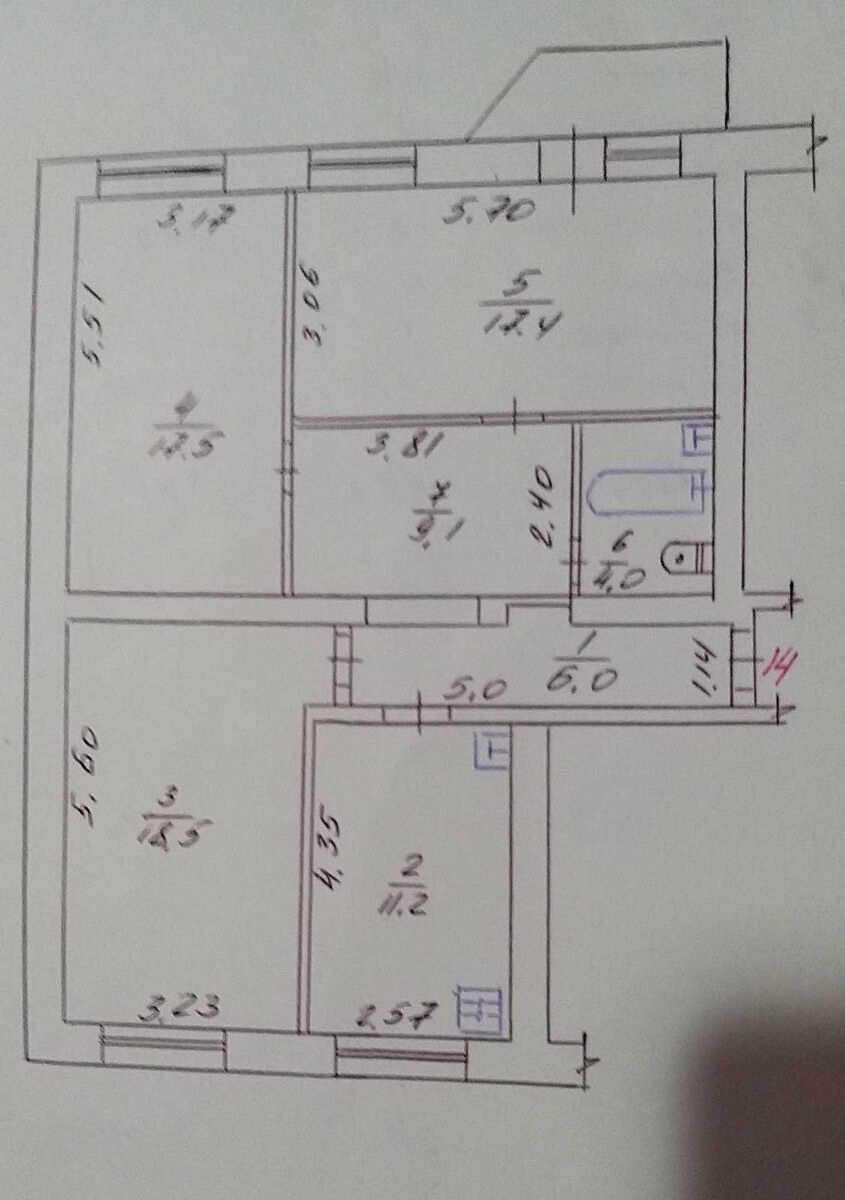 3.17
5.70
5.51
3.06
5
17.4
4
17.5
3.81
7
9.1
2.40
6
4.0
1
6.0
5.0
1.14
14
5.60
3
18.5
4.35
2
11.2
3.23
2.57